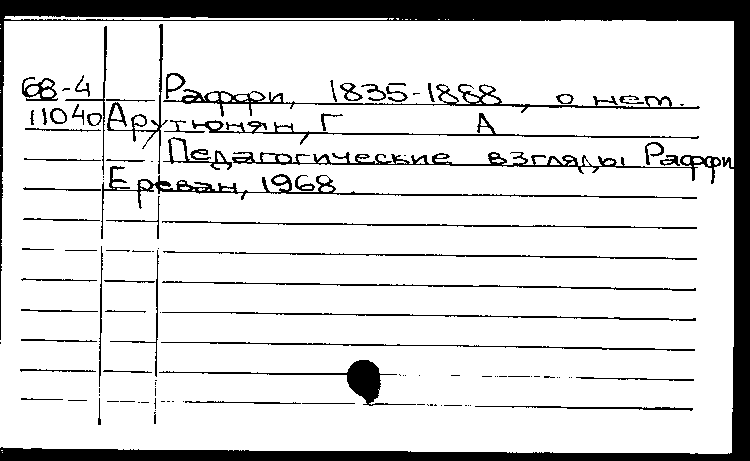 68-4 Раффи, 1835-1888, о нем.
11040 Арутюнян, Г А
Педагогические взгляды Раффи
Ереван, 1968.